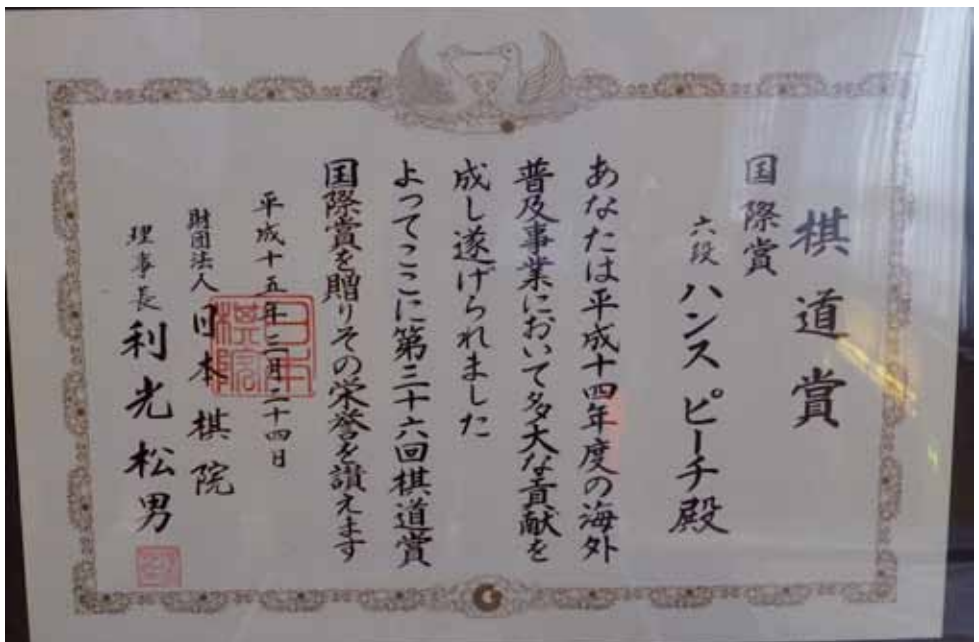 棋道賞
国際賞
六段 ハンス ピーチ殿
あなたは平成十四年度の海外
普及事業において多大な貢献を
成し遂げられました
よってここに第三十六回棋道賞
国際賞を贈りその栄誉を讃えます
平成十五年三月二十四日
財団法人 日本棋院
理事長 利光松男
日本
棋院